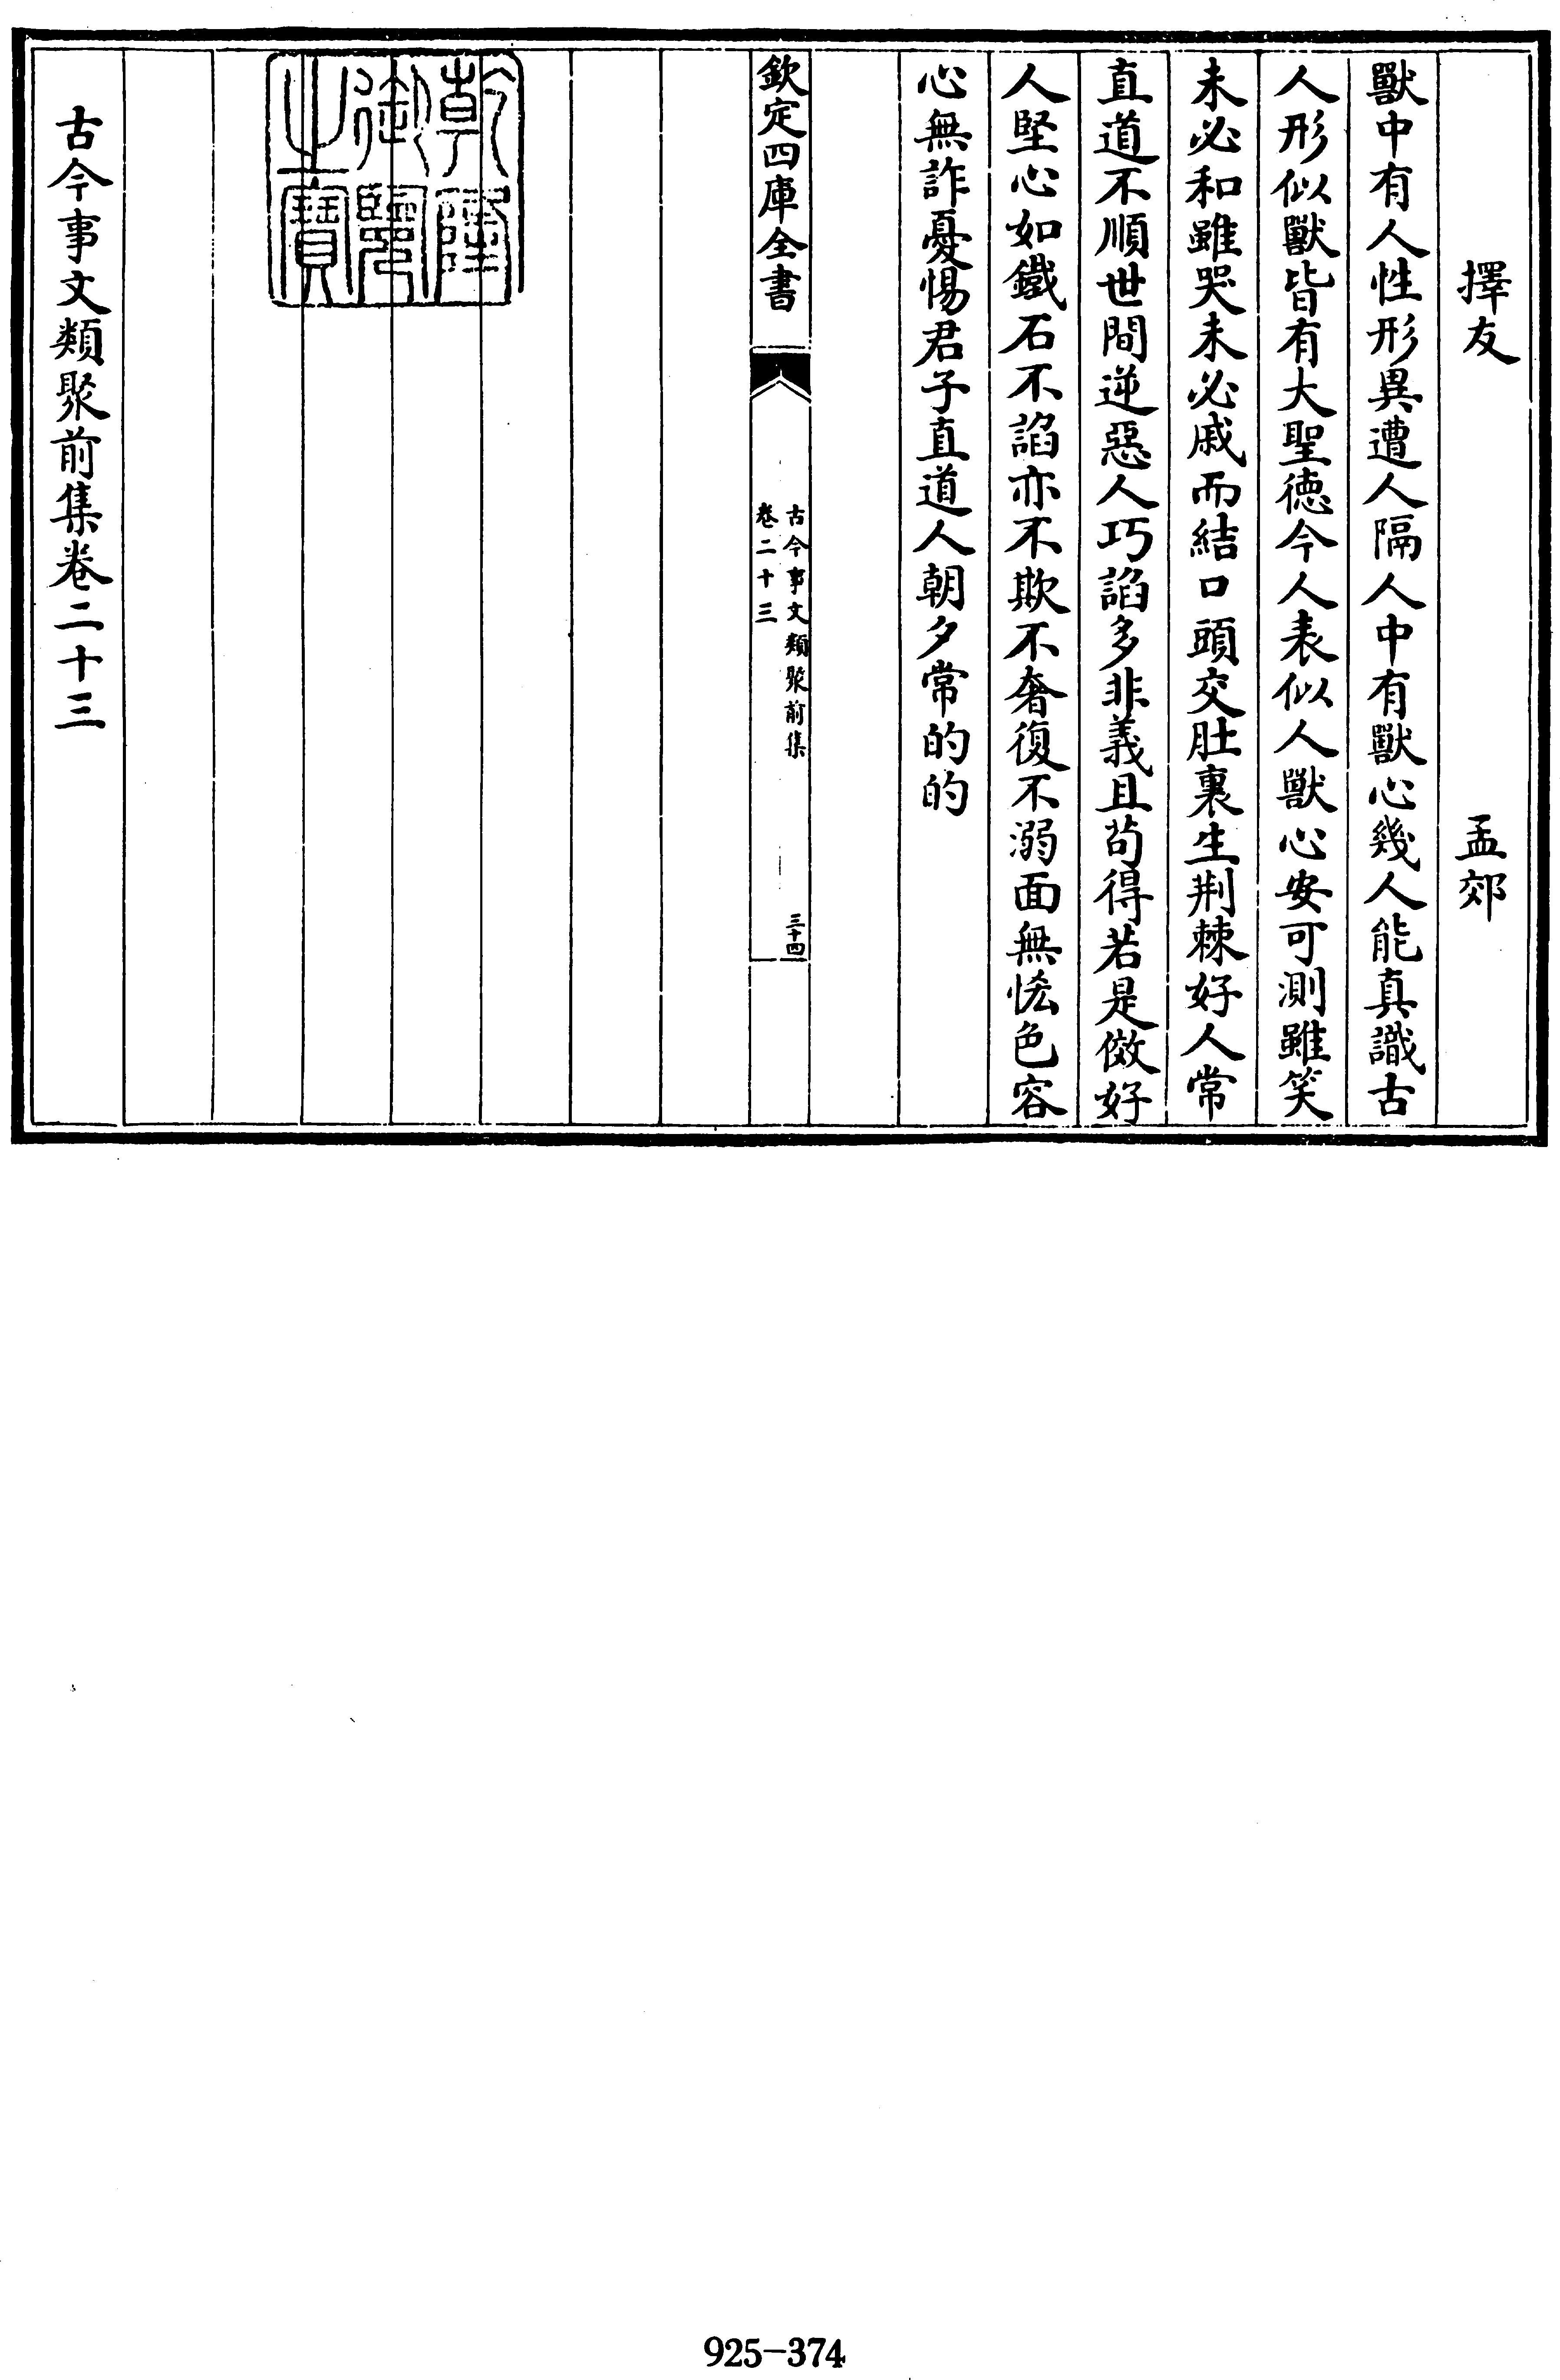 擇友　孟郊
獸中有人性形異遭人隔人中有獸心幾人能真識古
人形似獸皆有大聖德今人表似人獸心安可測雖笑
未必和雖哭未必戚而結口頭交肚裏生荆棘好人常
直道不順世間逆惡人巧諂多非義且茍得若是傚好
人堅心如鐵石不諂亦不欺不奢復不溺面無恡色容
心無詐憂惕君子直道人朝夕常的的
欽定四庫全書
古今事文類聚前集
卷二十三
三十四
乾隆
御覽
之寶
古今事文類聚前集卷二十三
925-374